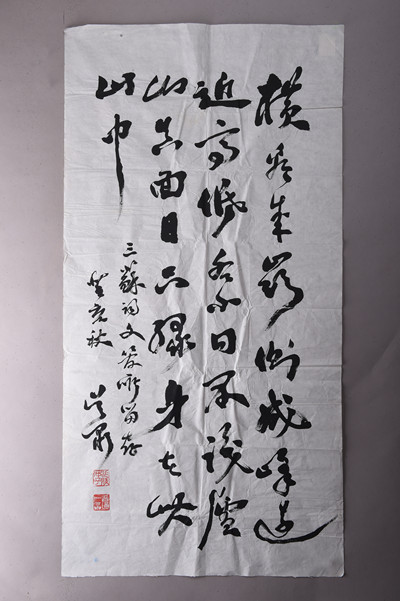 橫看成嶺側成峰遠
近高低各不同不識廬
山真面目只緣身在此
山中
三蘇文留
癸亥秋